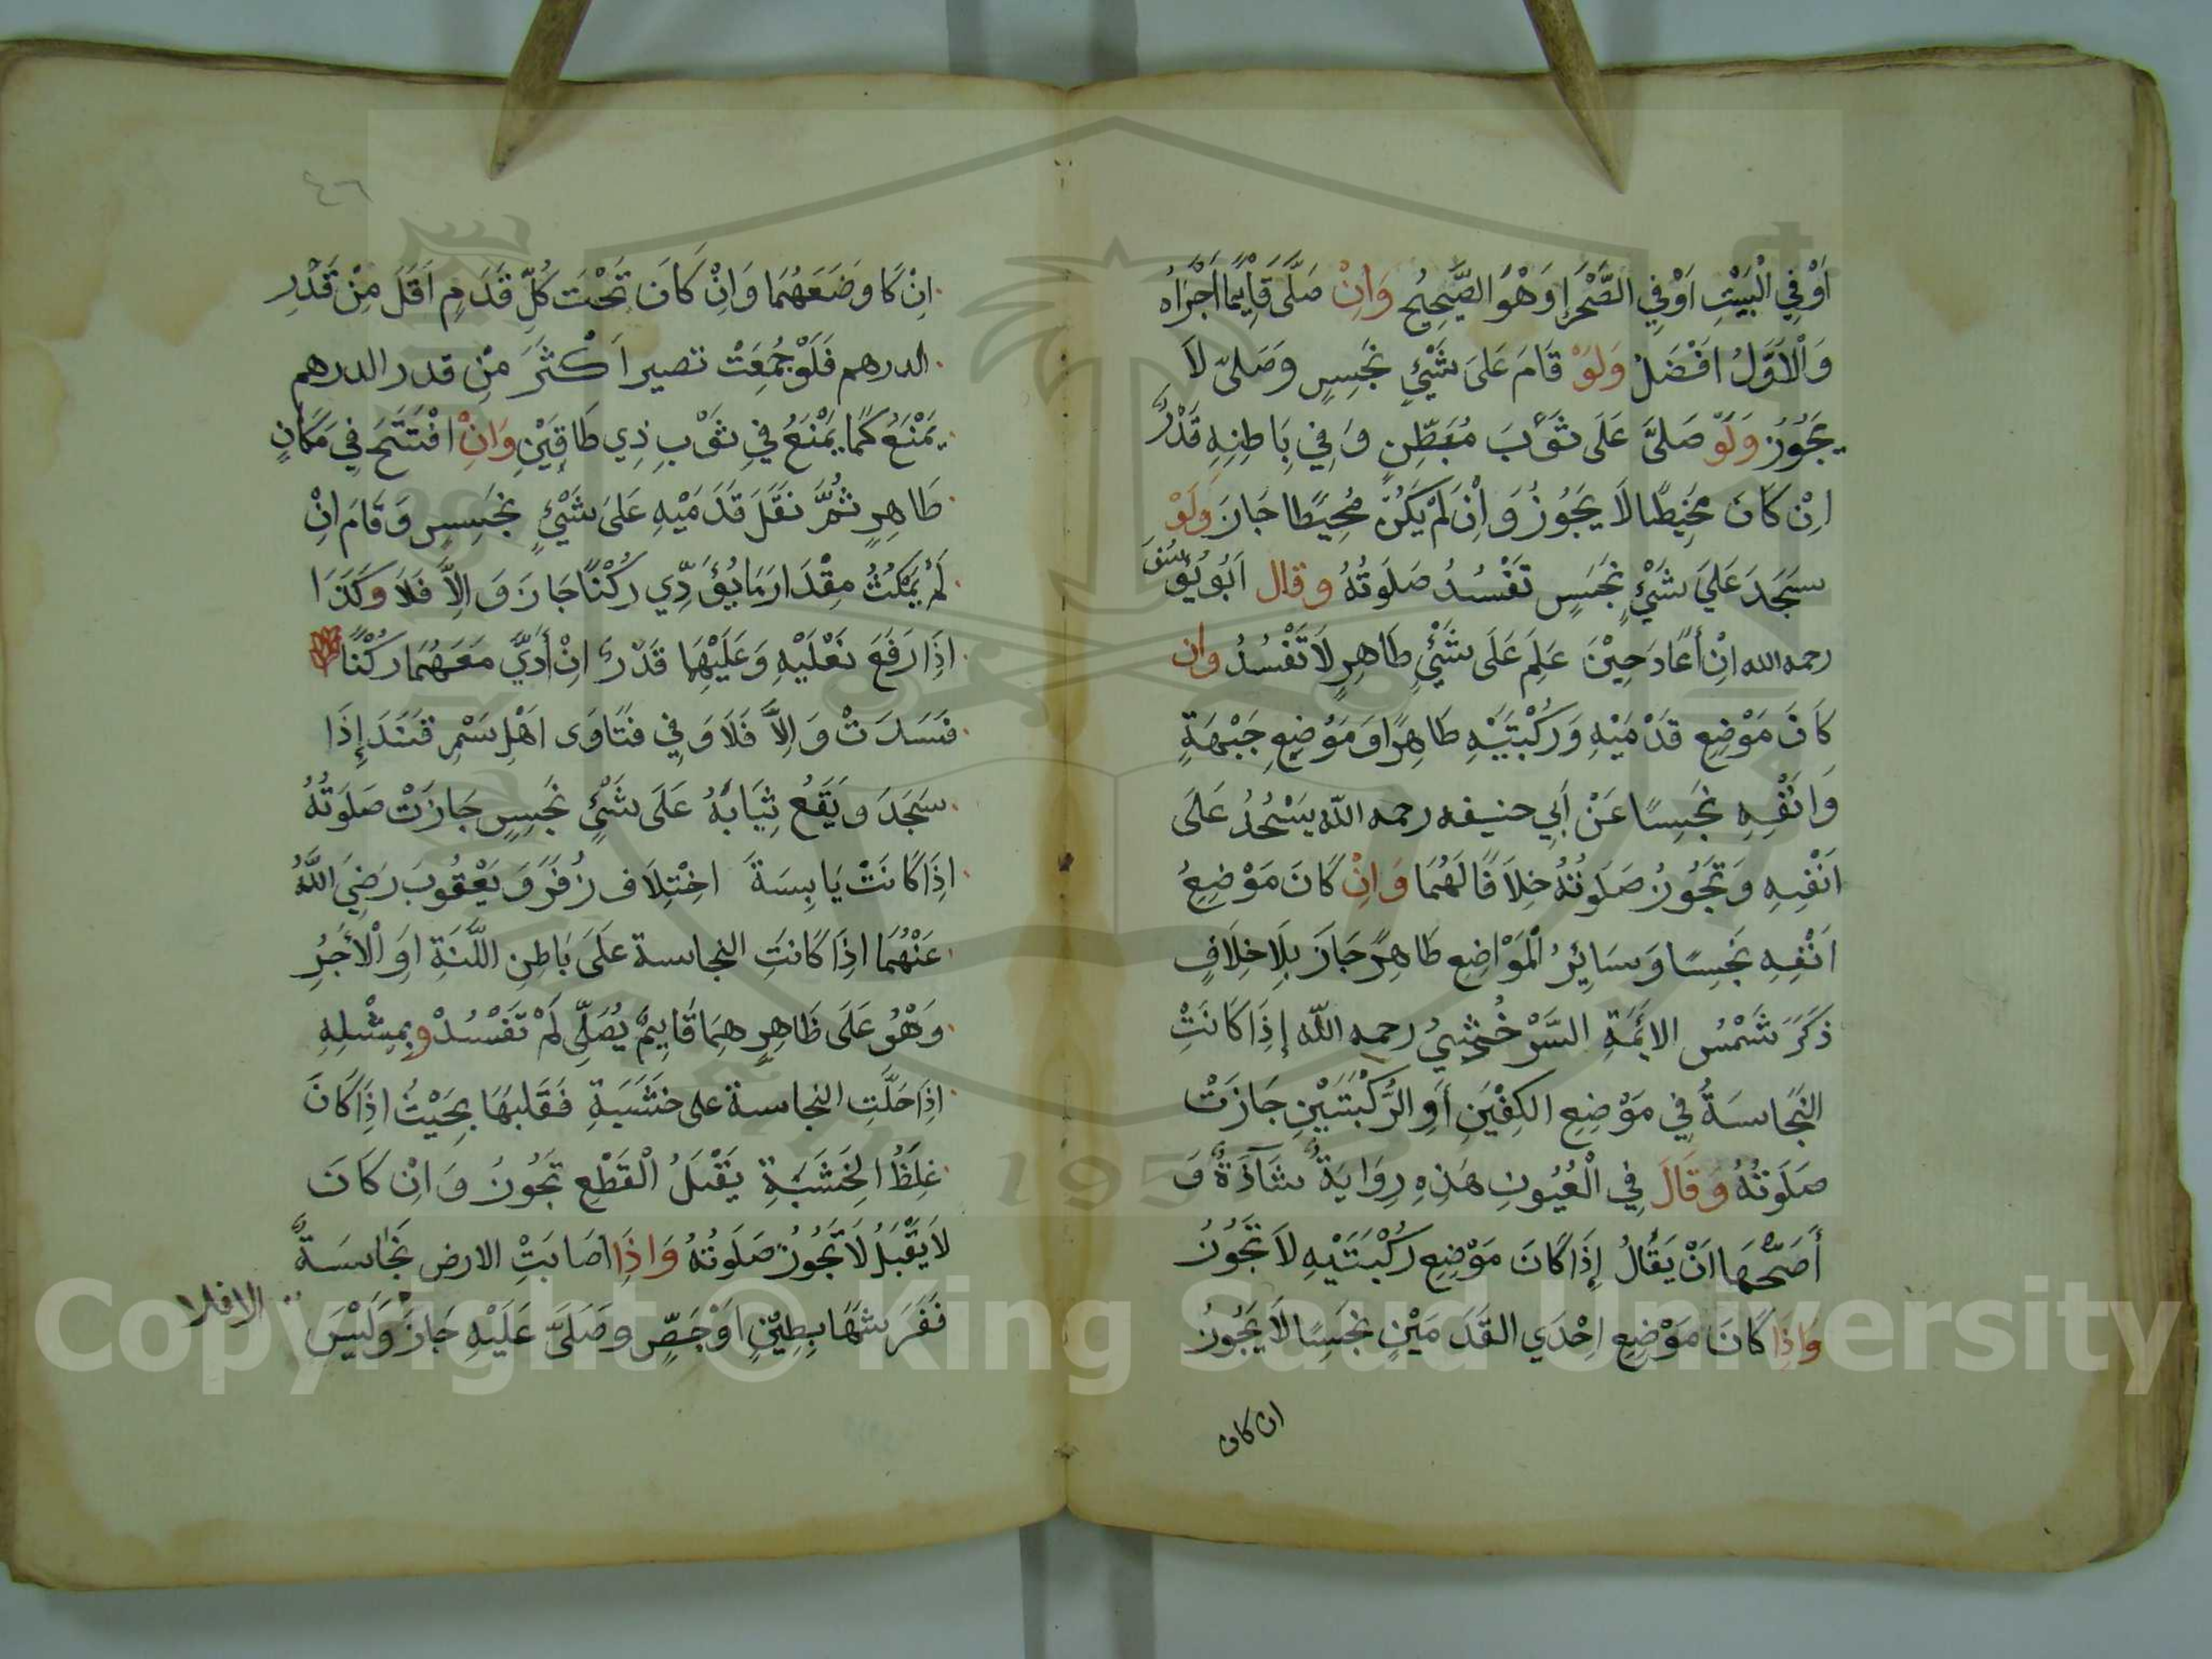 اَوْ فِي الْبَيْتِ اَوْ فِي الصَّحْرَاِ وَهُوَ الصَّحِيحُ وَاِنْ صَلَّى قَايِمًا اَجْزَاهُ
وَالْاَوَّلُ اَفْضَلُ وَلَوْ قَامَ عَلَى شَيْءٍ نَجِسٍ وَصَلَّى لَا
يَجُوزُ وَلَوْ صَلَّى عَلَى ثَوْبَ مُبَطَّنٍ وَفِي بَاطِنِهِ قَدْرٌ
اِنْ كَانَ مَخِيطًا لَا يَجُوزُ وَاِنْ لَمْ يَكُنْ مَخِيطًا جَازَ وَلَوْ
سَجَدَ عَلَى شَيْءٍ نَجِسٍ تَفْسُدُ صَلَوتُهُ وقال اَبُو يُوسُفَ
رحمه الله اِنْ أَعَادَ حِيْنَ عَلِمَ عَلَى شَيْءٍ طَاهِرٍ لَا تَفْسُدُ وان
كَانَ مَوْضِعِ قَدْمَيْهِ وَرُكْبَتَيْهِ طَاهِرًا وَمَوْضِعِ جَبْهَةٍ
وَانْفِهِ نَجِسًا عَنْ اَبِي حنيفه رحمه اللّه يَسْجُدُ عَلَى
اَنْفِهِ وَتَجُوزُ صَلَوتُهُ خِلَافًا لَهُمَا وَاِنْ كَانَ مَوْضِعُ
اَنْفِهِ نَجِسًا وَسَايِرُ الْمَوَاضِعِ طَاهِرً جَازَ بِلَا خِلَافٍ
ذَكَرَ شَمْسُ الايمَّةِ السَّرْخُسِيُ رحمه اللّه إِذَا كَانَتْ
النَّجَاسَةُ فِي مَوْضِعِ الكفَّيْنِ أَوِ الرُّكْبَتَيْنِ جَازَتْ
صَلَوتُهُ وَقَالَ فِي الْعُيُونِ هَذِهِ رِوَايَةٌ شَاذَّةٌ وَ
أَصَحُّهَا اَنْ يَقُالُ إِذَا كَانَ مَوْضِعِ رُكْبَتَيْهِ لَا تَجُوزُ
وَاِذَا كَانَ مَوْضِعِ اِحْدَي القَدَمَيْنِ نَجِسًا لَا يَجُوزُ
ان كان
٤٦
اِنْ كَا وَضَعَهُمَا وَاِنْ كَانَ تَحْتَ كُلِّ قَدَمٍ اَقَلَ مِنْ قَدْرِ
الدرهم فَلَوْ جُمِعَتْ تصير اَكْثَرَ مِنْ قدر الدرهم
يَمْنَعُ كَمَا يَمْنَعُ فِي ثَوْبِ ذِي طَاقَيْنِ وَاِنْ افْتَتَحَ فِي مَكَانٍ
طَاهِرٍ ثُمَّ نَقَلَ قَدَمَيْهِ عَلَى شَيْءٍ نَجِسٍ وَقَامَ اِنْ
لَمْ يَمْكُثْ مِقْدَارَ مَا يُؤَدِّي رُكْنًا جَازَ وَاِلَّا فَلَا وَكَذَا
اِذَا رَفَعَ نَعْلَيْهِ وَعَلَيْهِمَا قَدْرٌ اِنْ أَدَّى مَعَهُمَا رُكْنًا
فَسَدَتْ وَاِلَّا فَلَا وَفِي فَتَاوَى اَهْلِ سَمْرِقَنْدَ إِذَا
سَجَدَ وَيَقَعُ ثِيَابَهُ عَلَى شَيْءٍ نَجِسٍ جَازَتْ صَلَوتُهُ
اِذَا كَانَتْ يَابِسَةً اخْتِلَاف زُفَرَ وَيَعْقُوبَ رَضِيَ اللَّهُ
عَنْهُمَا اِذَا كَانَتِ النجاسة عَلَى بَاطِنِ اللَّبَنَةِ اَوِ الْأَجُرِ
وَهُوَ عَلَى ظَاهِرِهِمَا قَايِمٌ يُصَلِّى لَمْ تَفْسُدْ وبِمِثْلِهِ
اِذَا حَلَّتِ النجاسة على خَشَبَةٍ فَقَلبَهَا بِحَيْثُ اِذَا كَانَ
غِلَظُ الخَشَبَةِ يَقْبَلُ الْقَطْعِ تَجُوزُ وَاِنْ كَانَ
لَا يَقْبَلُ لَا تَجُوزُ صَلَوتُهُ وَاِذَا اصَابَتِ الارض نَجَاسَةٌ
فَفَرَشَهَا بِطِيْنٍ اَوْ جَصٍّ وصَلَّى عَلَيْهِ جَازَ وَلَيْسَ
الا فلا
Copyright © King Saud University
195